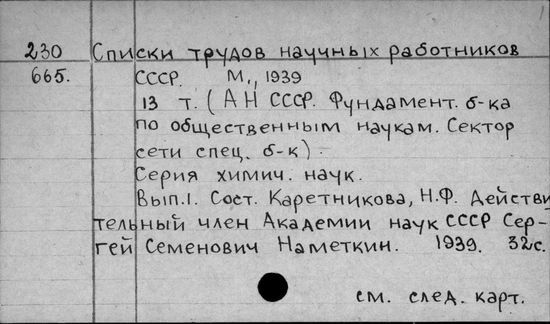 230 Списки трудов научных работников
665. СССР. М., 1939
13 т. (АН СССР. Фундамент. б-ка
по общественным наукам. Сектор
сети спец. б-к)
Серия химич. наук.
Вып.1. Сост. Каретникова, Н.Ф. Действи
тельный член Академии наук СССР Сер-
гей Семенович Наметкин. 1939. 32с.
см. след. карт.